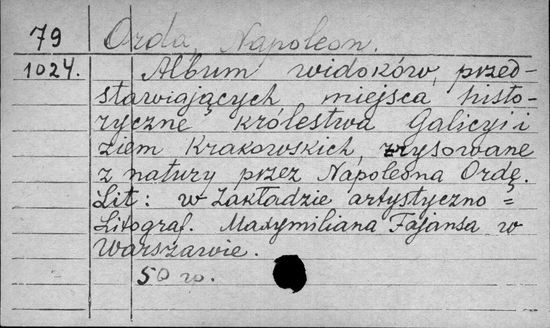 79 Orda, Napoleon.
1024. Album widoków, przed-
stawiających miejsca histo-
ryczne królestwa Galicyi i
ziem Krakowskich, zrysowane
z natury przez Napoleona Ordę.
Lit: w Zakładzie artystyczno=
Litograf. Maxymiliana Fajansa w
Warszawie.
50 w.